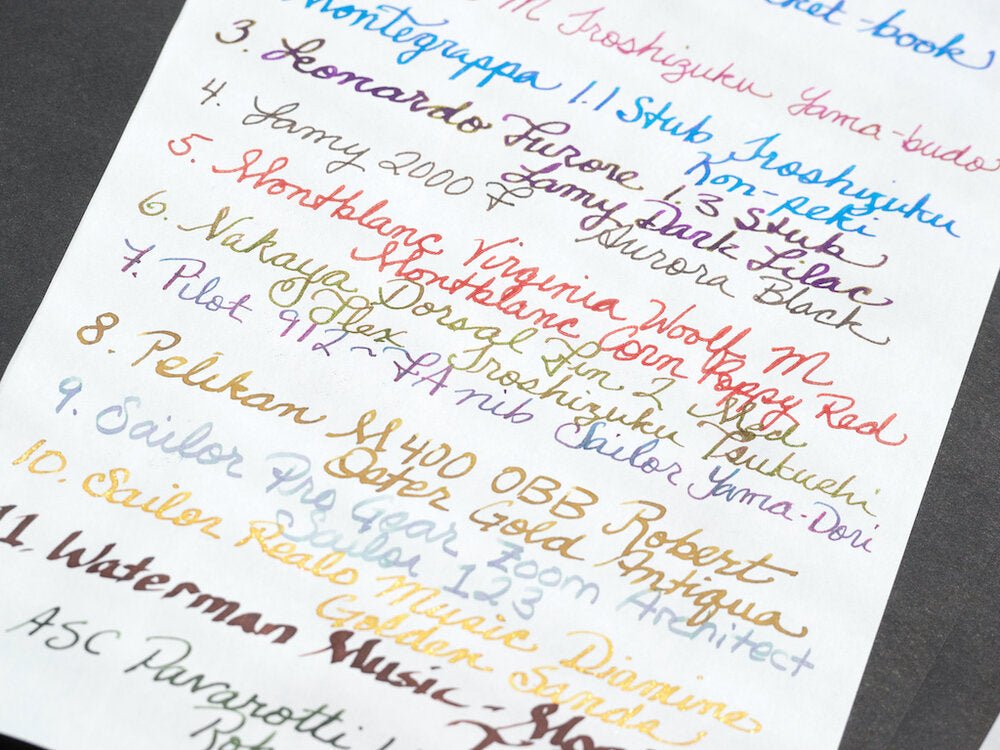 ket-book
M Iroshizuku Yama-budo
Montegrappa 1.1 Stub Iroshizuku
Kon-peki
3. Leonardo Furore 1.3 Stub
Lamy Dark Lilac
4. Lamy 2000 F Aurora Black
5. Montblanc Virginia Woolf M
Montblanc Corn Poppy Red
6. Nakaya Dorsal Fin 2 Med
Flex Iroshizuku Tsukushi
7. Pilot 912~FA nib Sailor Yama-Dori
8. Pelikan M400 OBB Robert
Oster Gold Antiqua
9. Sailor Pro Gear Zoom Architect
Sailor 123
10. Sailor Realo Music Diamine
Golden Sands
11. Waterman Music - Mo
ASC Pavarotti
Rob